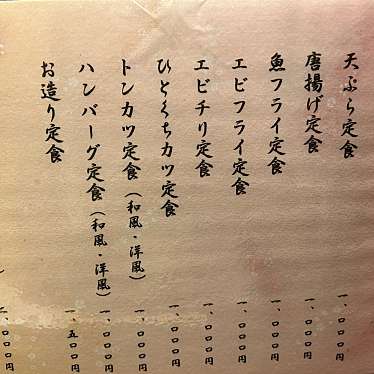 天ぷら定食 一、〇〇〇円
唐揚げ定食 一、〇〇〇円
魚フライ定食 一、〇〇〇円
エビフライ定食 一、〇〇〇円
エビチリ定食 一、〇〇〇円
ひとくちカツ定食 一、〇〇〇円
トンカツ定食(和風・洋風) 一、〇〇〇円
ハンバーグ定食(和風・洋風) 一、〇〇〇円
お造り定食 一、五〇〇円
二、〇〇〇円